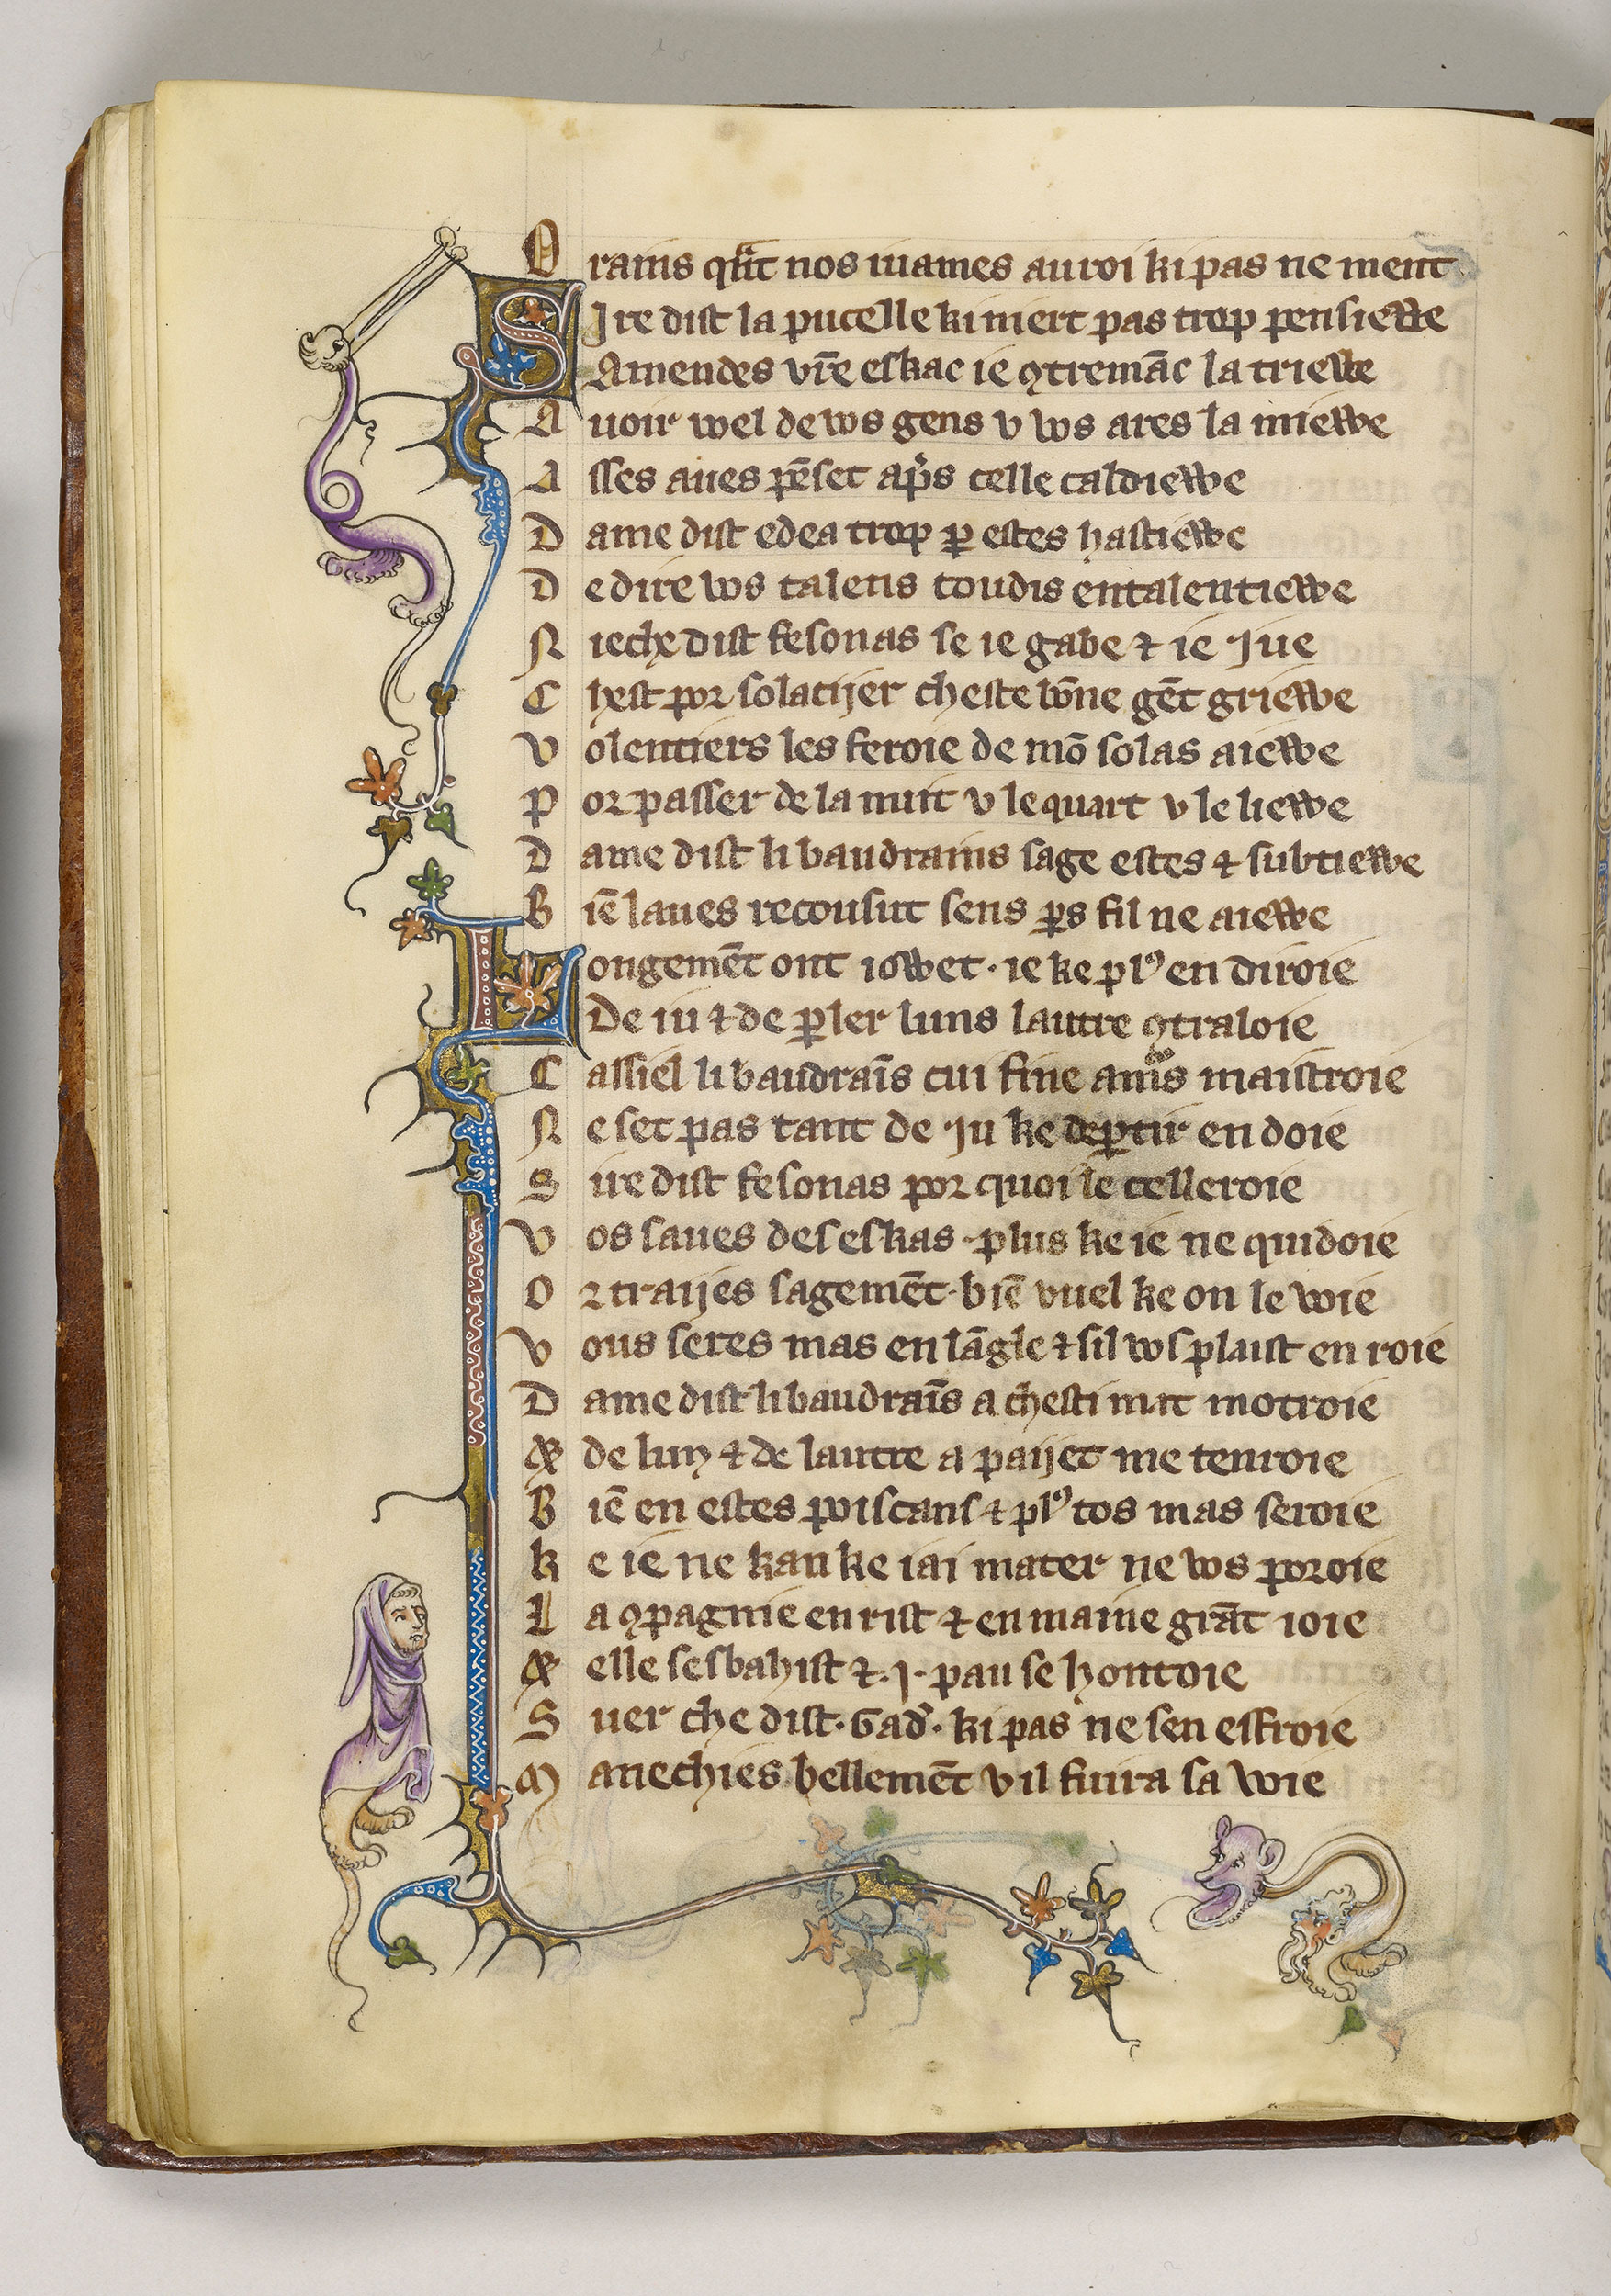 O rains qnt nos iuames au roi ki pas ne ment
SIre dist la pucelle ki niert pas trop pensiewe
Amendes vr̄e eskac ie ꝯtremāc la triewe
A uoir wel de ws gens v ws ares la miewe
A sses aues pēset ap̓s celle caldiewe
D ame dist edea trop ꝑ estes hastiewe
D e dire ws talens toudis entalentiewe
N ieche dist fesonas se ie gabe ⁊ ie Jue
C hest por solacijer cheste bōne gēt griewe
V olentiers les feroie de mō solas aiewe
P or passer de la nuit v le quart v le liewe
D ame dist li baudrains sage estes ⁊ subtiewe
B iē laues recousut sens ꝑs fil ne aiewe
Longemēt ont iowet · ie ke plꝰ en diroie
De iu ⁊ de ꝑler luns lautre ꝯtraloie
C assiel li baudraīs cui fine amͬs maistroie
N e set pas tant de Ju ke deꝑtir en doie
S ire dist fesonas por quoi le celleroie
V os saues des eskas · plus ke ie ne quidoie
O r traijes sagemēt · biē vuel ke on le woie
V ous seres mas en lāgle ⁊ sil ws plaist en roie
D ame dist li baudraīs a chesti mat motroie
Et de lun ⁊ de lautre a paijet me tenroie
B iē en estes poiscans ⁊ plꝰ tos mas seroie
K e ie ne kau ke iai mater ne ws poroie
L a ꝯpagnie en rist ⁊ en maine grāt ioie
Et elle sesbahist ⁊ · J · pau se hontoie
S uer che dist · Gad̓ · ki pas ne sen esfroie
M anechies bellemēt v il fuira sa woie